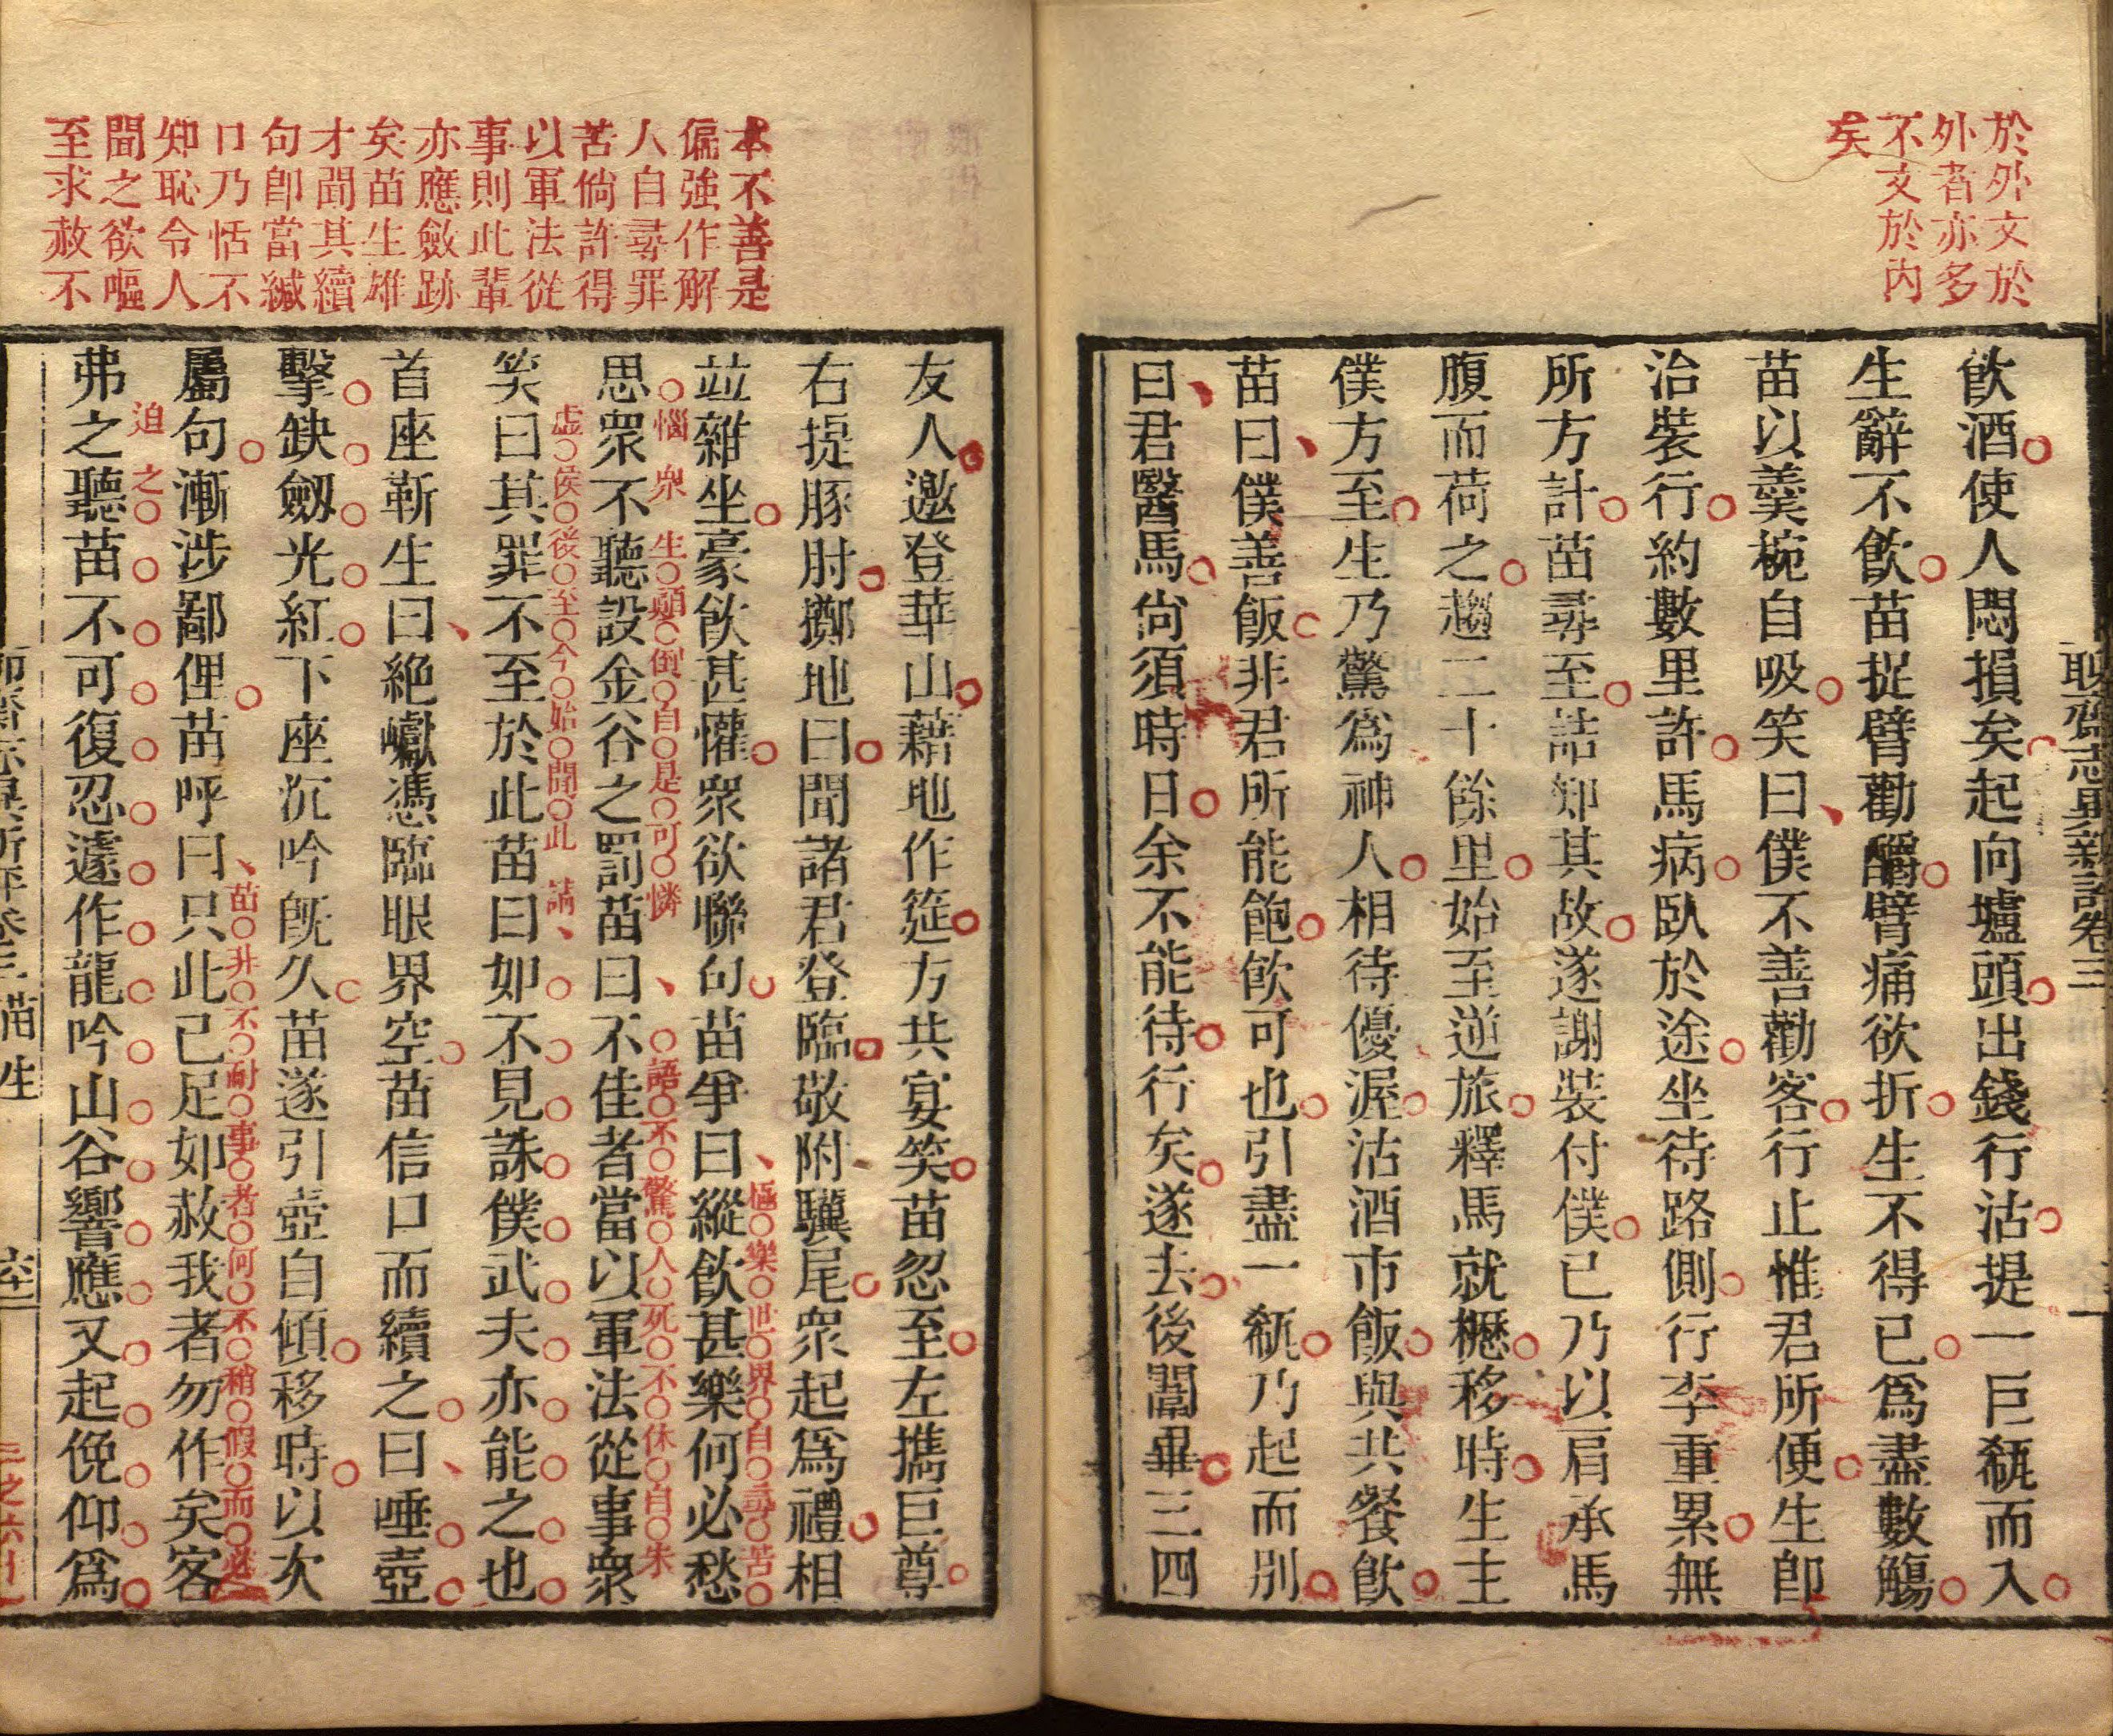 於外文於
外者亦多
不文於內
矣
聊齋志異新評卷三
飲酒使人悶損矣起向壚頭出錢行沽提一巨瓻而入
生辭不飲苗捉臂勸釂臂痛欲折生不得已爲盡數觴
苗以羹椀自吸笑曰僕不善勸客行止惟君所便生卽
治裝行約數里許馬病臥於途坐待路側行李重累無
所方計苗尋至詰知其故遂謝裝付僕已乃以肩承馬
腹而荷之趨二十餘里始至逆旅釋馬就櫪移時生主
僕方至生乃驚爲神人相待優渥沽酒市飯與共餐飲
苗曰僕善飯非君所能飽飲可也引盡一瓻乃起而別
曰君醫馬尙須時日余不能待行矣遂去後闈畢三四
本不善是
偏強作解
人自尋罪
苦倘許得
以軍法從
事則此輩
亦應斂跡
矣苗生雄
才聞其續
句卽當緘
口乃恬不
知恥令人
聞之欲嘔
至求赦不
友人邀登華山藉地作筵方共宴笑苗忽至左攜巨尊
右提豚肘擲地曰聞諸君登臨敬附驥尾衆起爲禮相
並雜坐豪飲甚懽衆欲聯句苗爭曰縱飲甚樂何必愁
極樂世界自尋苦
惱衆生顛倒自是可憐
思衆不聽設金谷之罰苗曰不佳者當以軍法從事衆
語不驚人死不休自朱
虛侯後至今始聞此
笑曰其罪不至於此苗曰如不見誅僕武夫亦能之也
首座靳生曰絕巘憑臨眼界空苗信口而續之曰唾壺
擊缺劒光紅下座沉吟旣久苗遂引壺自傾移時以次
屬句漸涉鄙俚苗呼曰只此已足如赦我者勿作矣客
苗升不耐事者何不稍假而必
迫之
弗之聽苗不可復忍遽作龍吟山谷響應又起俛仰爲
聊齋志異新評卷三 苗生